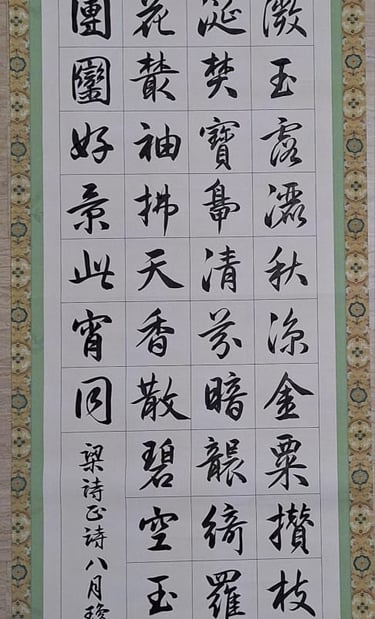 玉露灑秋涼金粟攢枝
涎焚寶鼎清芬暗襲綺羅
花叢袖拂天香散碧空玉
團圞好景此宵同
梁詩正詩八月